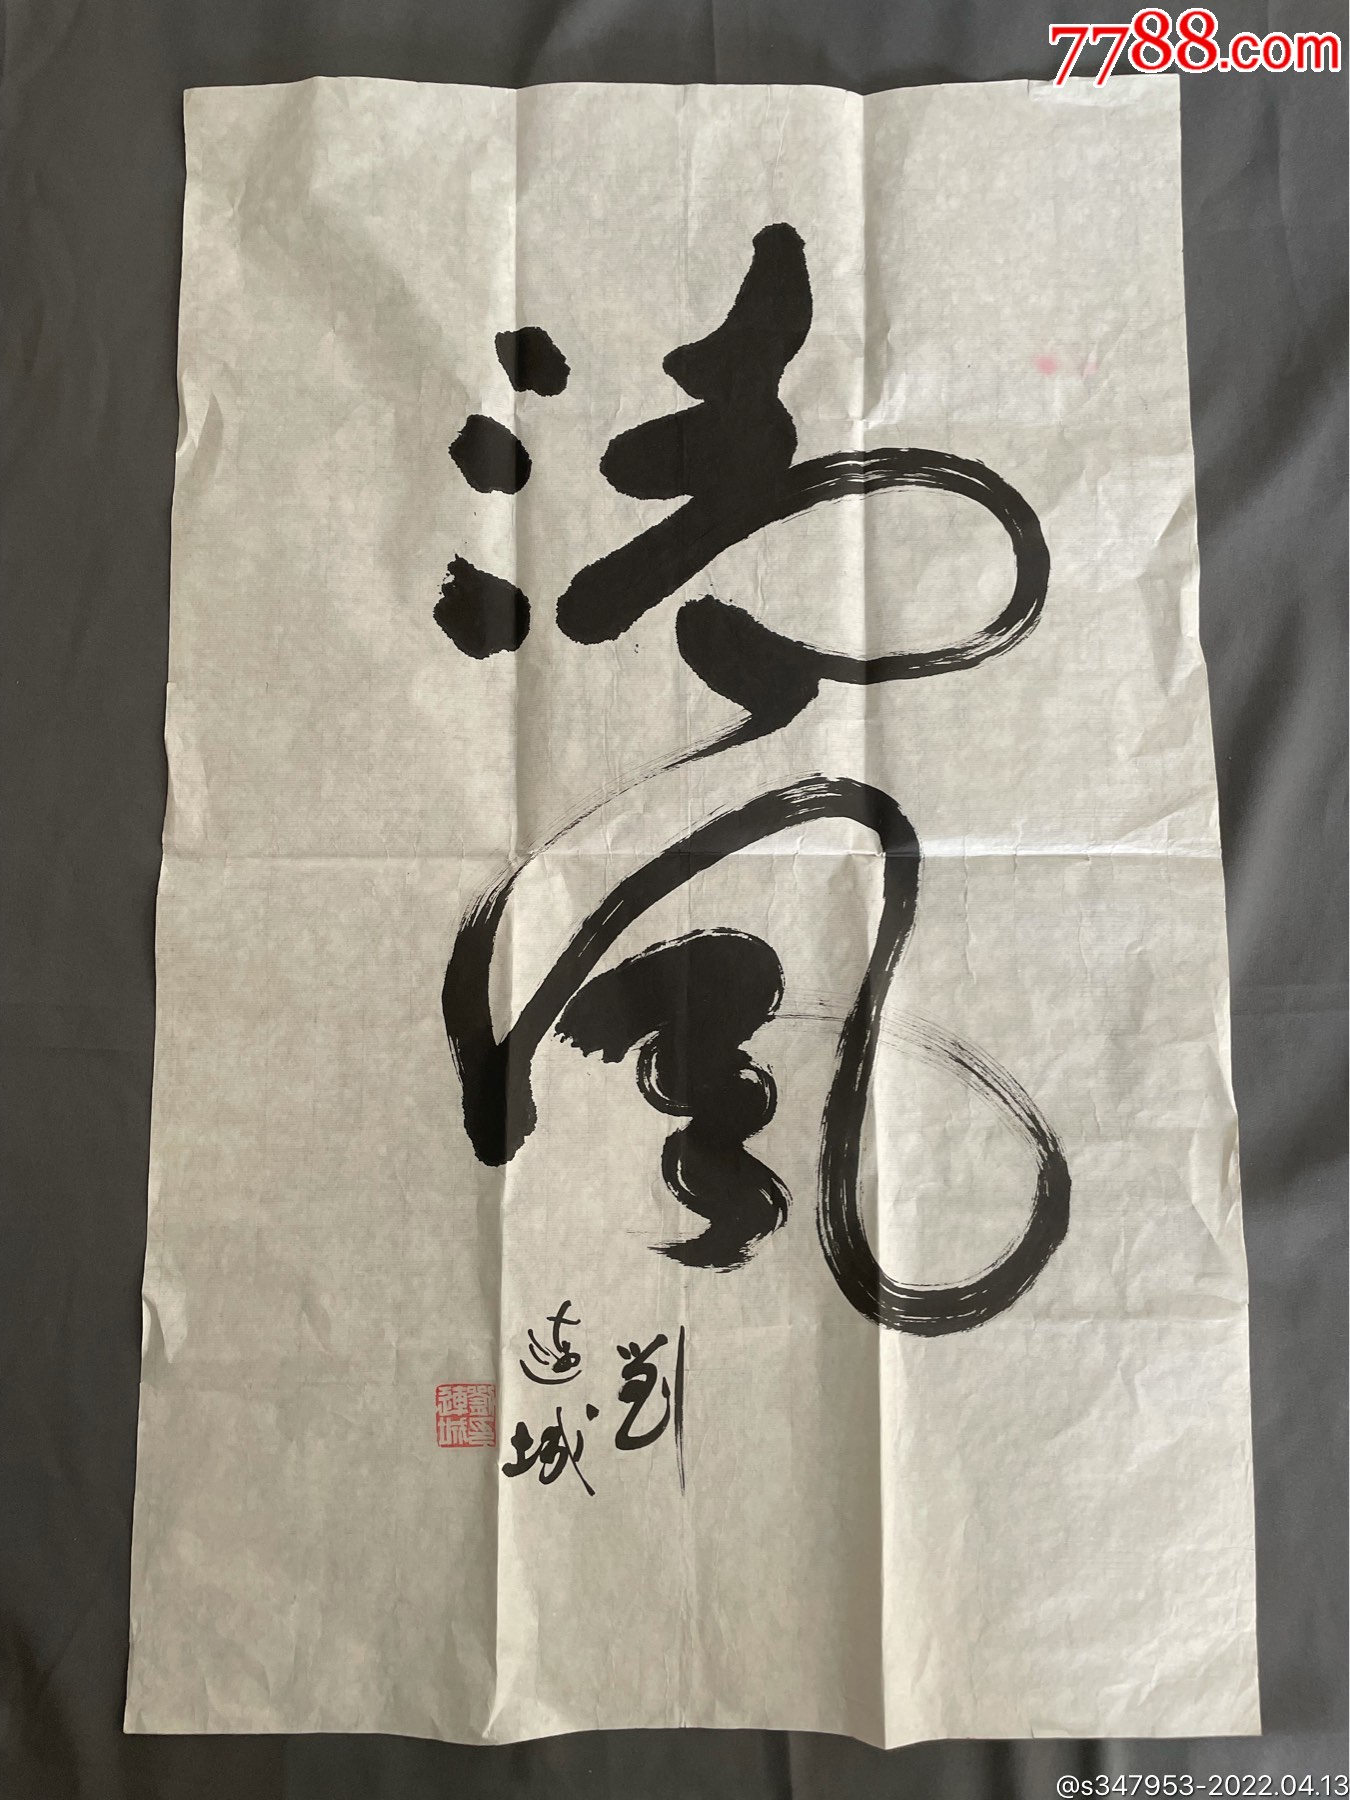 7788.com
清風
劉
連城
劉印
連城
@s347953-2022.04.13